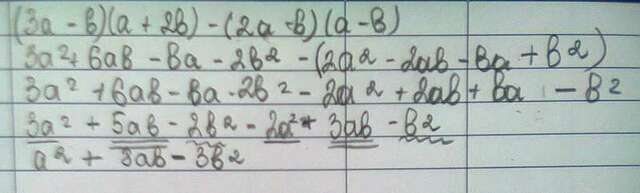 (3a - b)(a + 2b) - (2a - b)(a - b)
3a² + 6ab - ba - 2b² - (2a² - 2ab - ba + b²)
3a² + 6ab - ba - 2b² - 2a² + 2ab + ba - b²
3a² + 5ab - 2b² - 2a² + 3ab - b²
a² + 3ab - 3b²